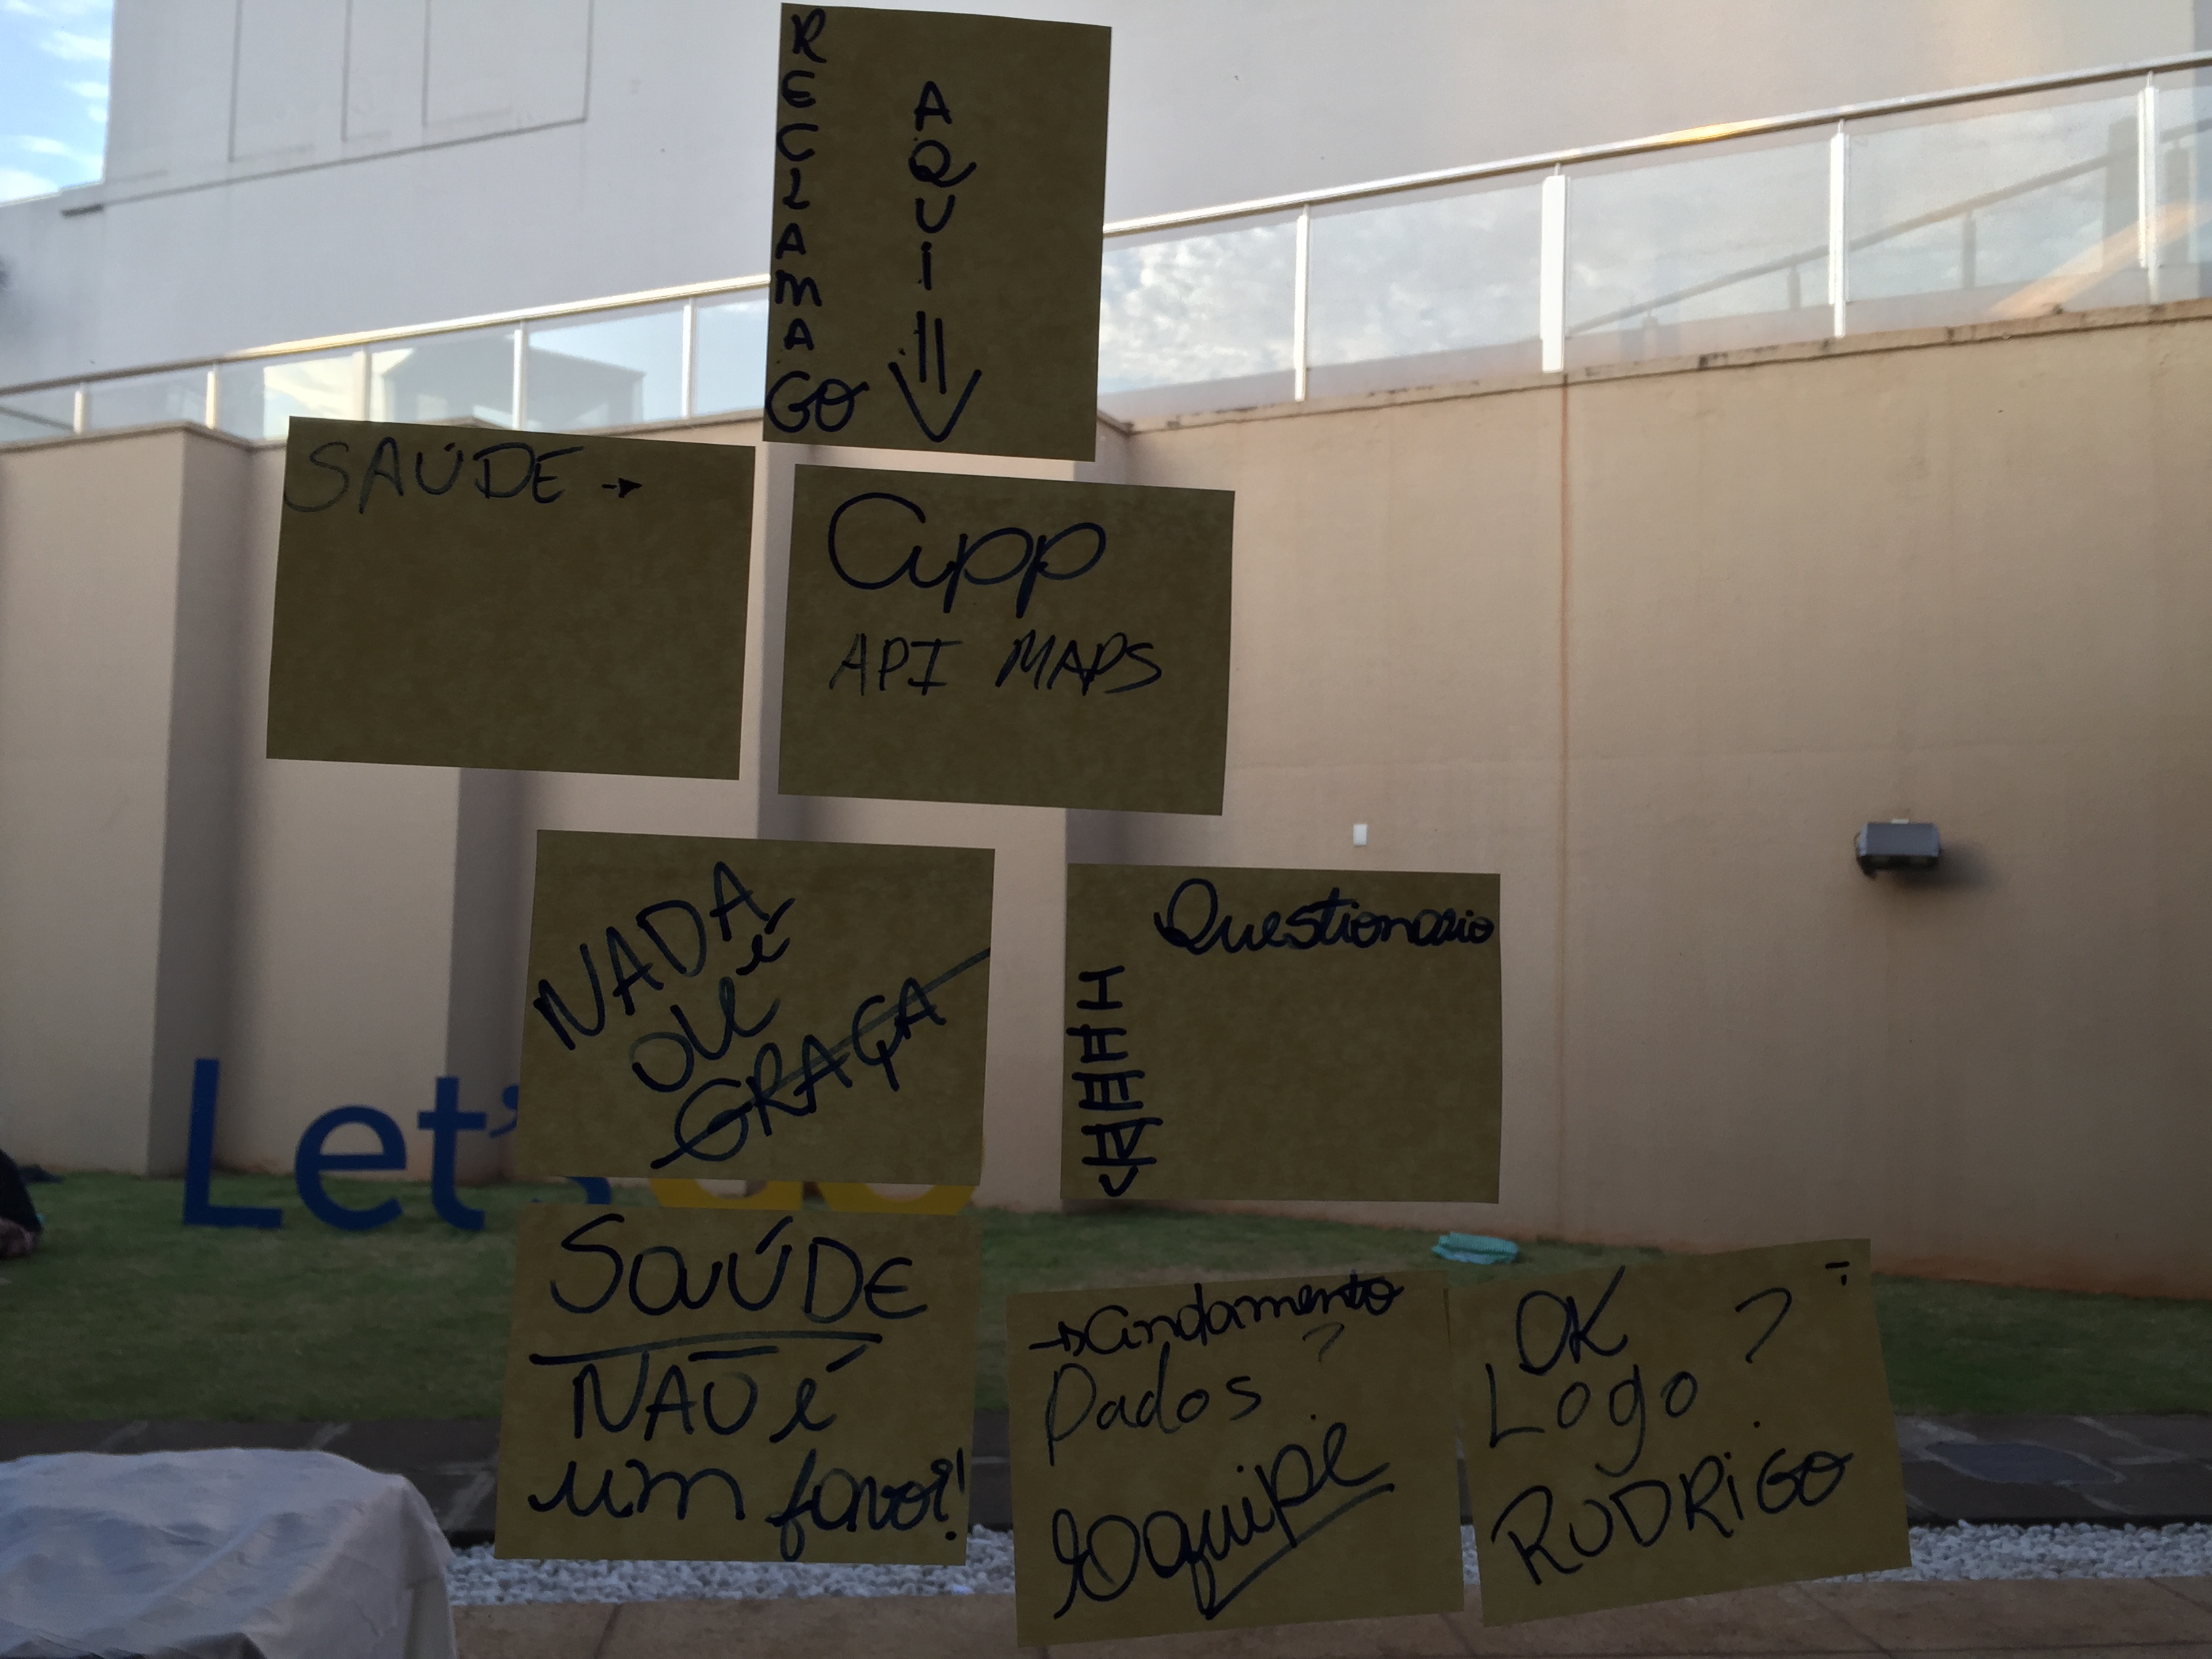 RECLAMAGO
AQUI
SAÚDE →
App
API MAPS
NADA
é
GRAÇA
Questionario
SaÚDE
NÃO é
um favor!
→ Andamento
Dados ?
OK
Logo ?
RODRiGO
Let's
GO